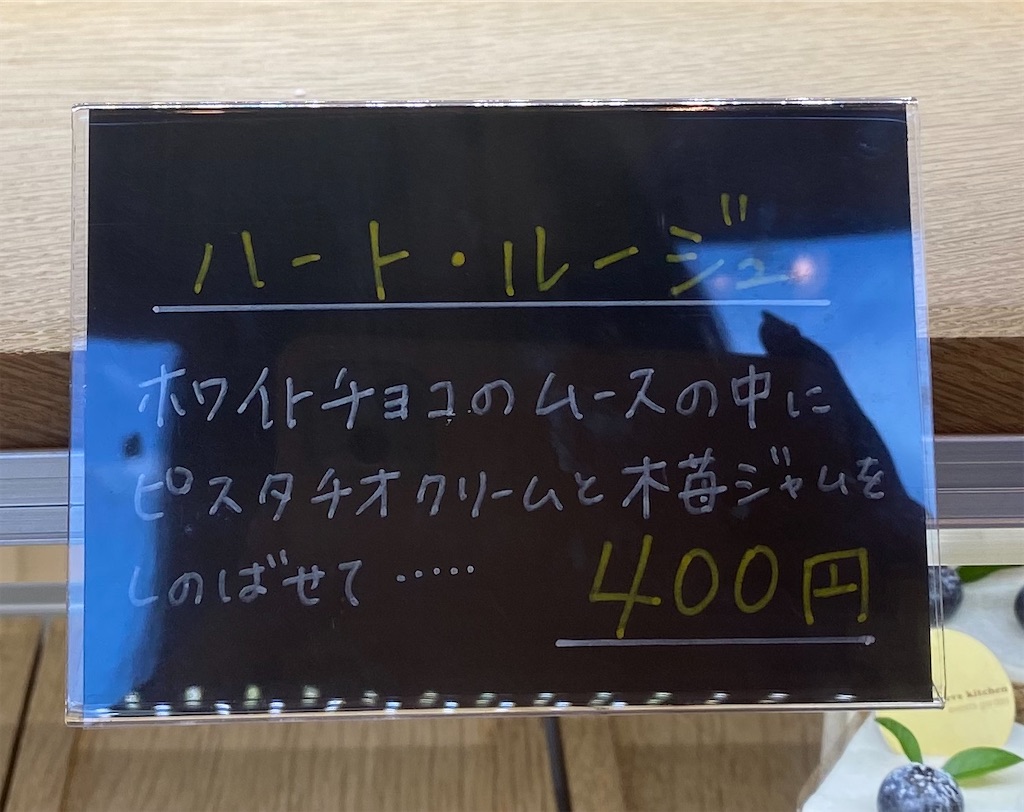 ハート・ルージュ
ホワイトチョコのムースの中に
ピスタチオクリームと木苺ジャムを
しのばせて……
400円
kitchen